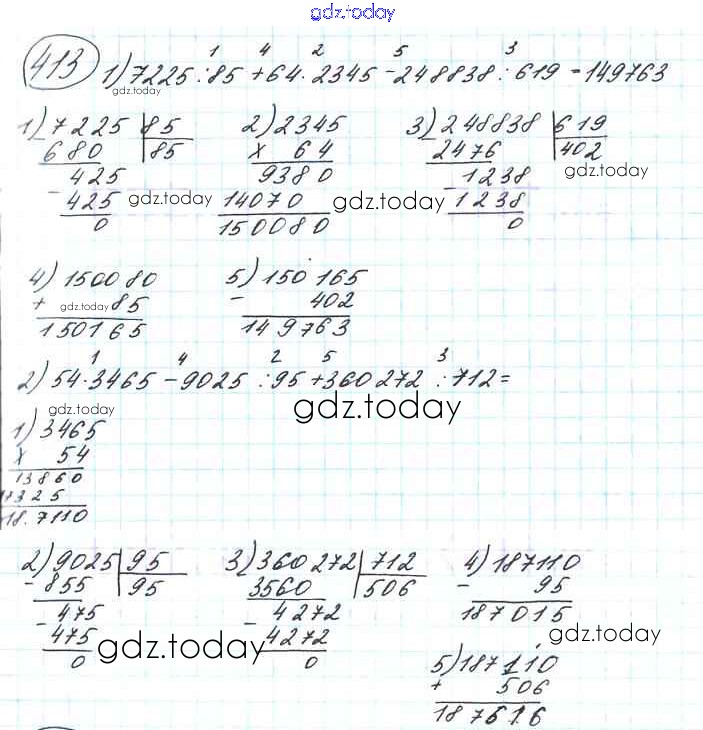 gdz.today
1 4 2 5 3
413 1) 7225 : 85 + 64 · 2345 - 248838 : 619 = 149763
gdz.today
1) 7225 85 2) 2345 3) 248838 619
- 680 85 x 64 - 2476 402
425 9380 - 1238 gdz.today
- 425 gdz.today 14070 gdz.today 1238
0 150080 0
4) 150080 5) 150165
+ gdz.today 85 - 402
150165 149763
1 4 2 5 3
2) 54 · 3465 - 9025 : 95 + 360272 : 712 =
gdz.today gdz.today
1) 3465
x 54
13860
17325
18.7110
2) 9025 95 3) 360272 712 4) 187110
- 855 95 3560 506 - 95
- 475 - 4272 187015
475 gdz.today 4272 gdz.today
0 0
5) 187110
+ 506
187616